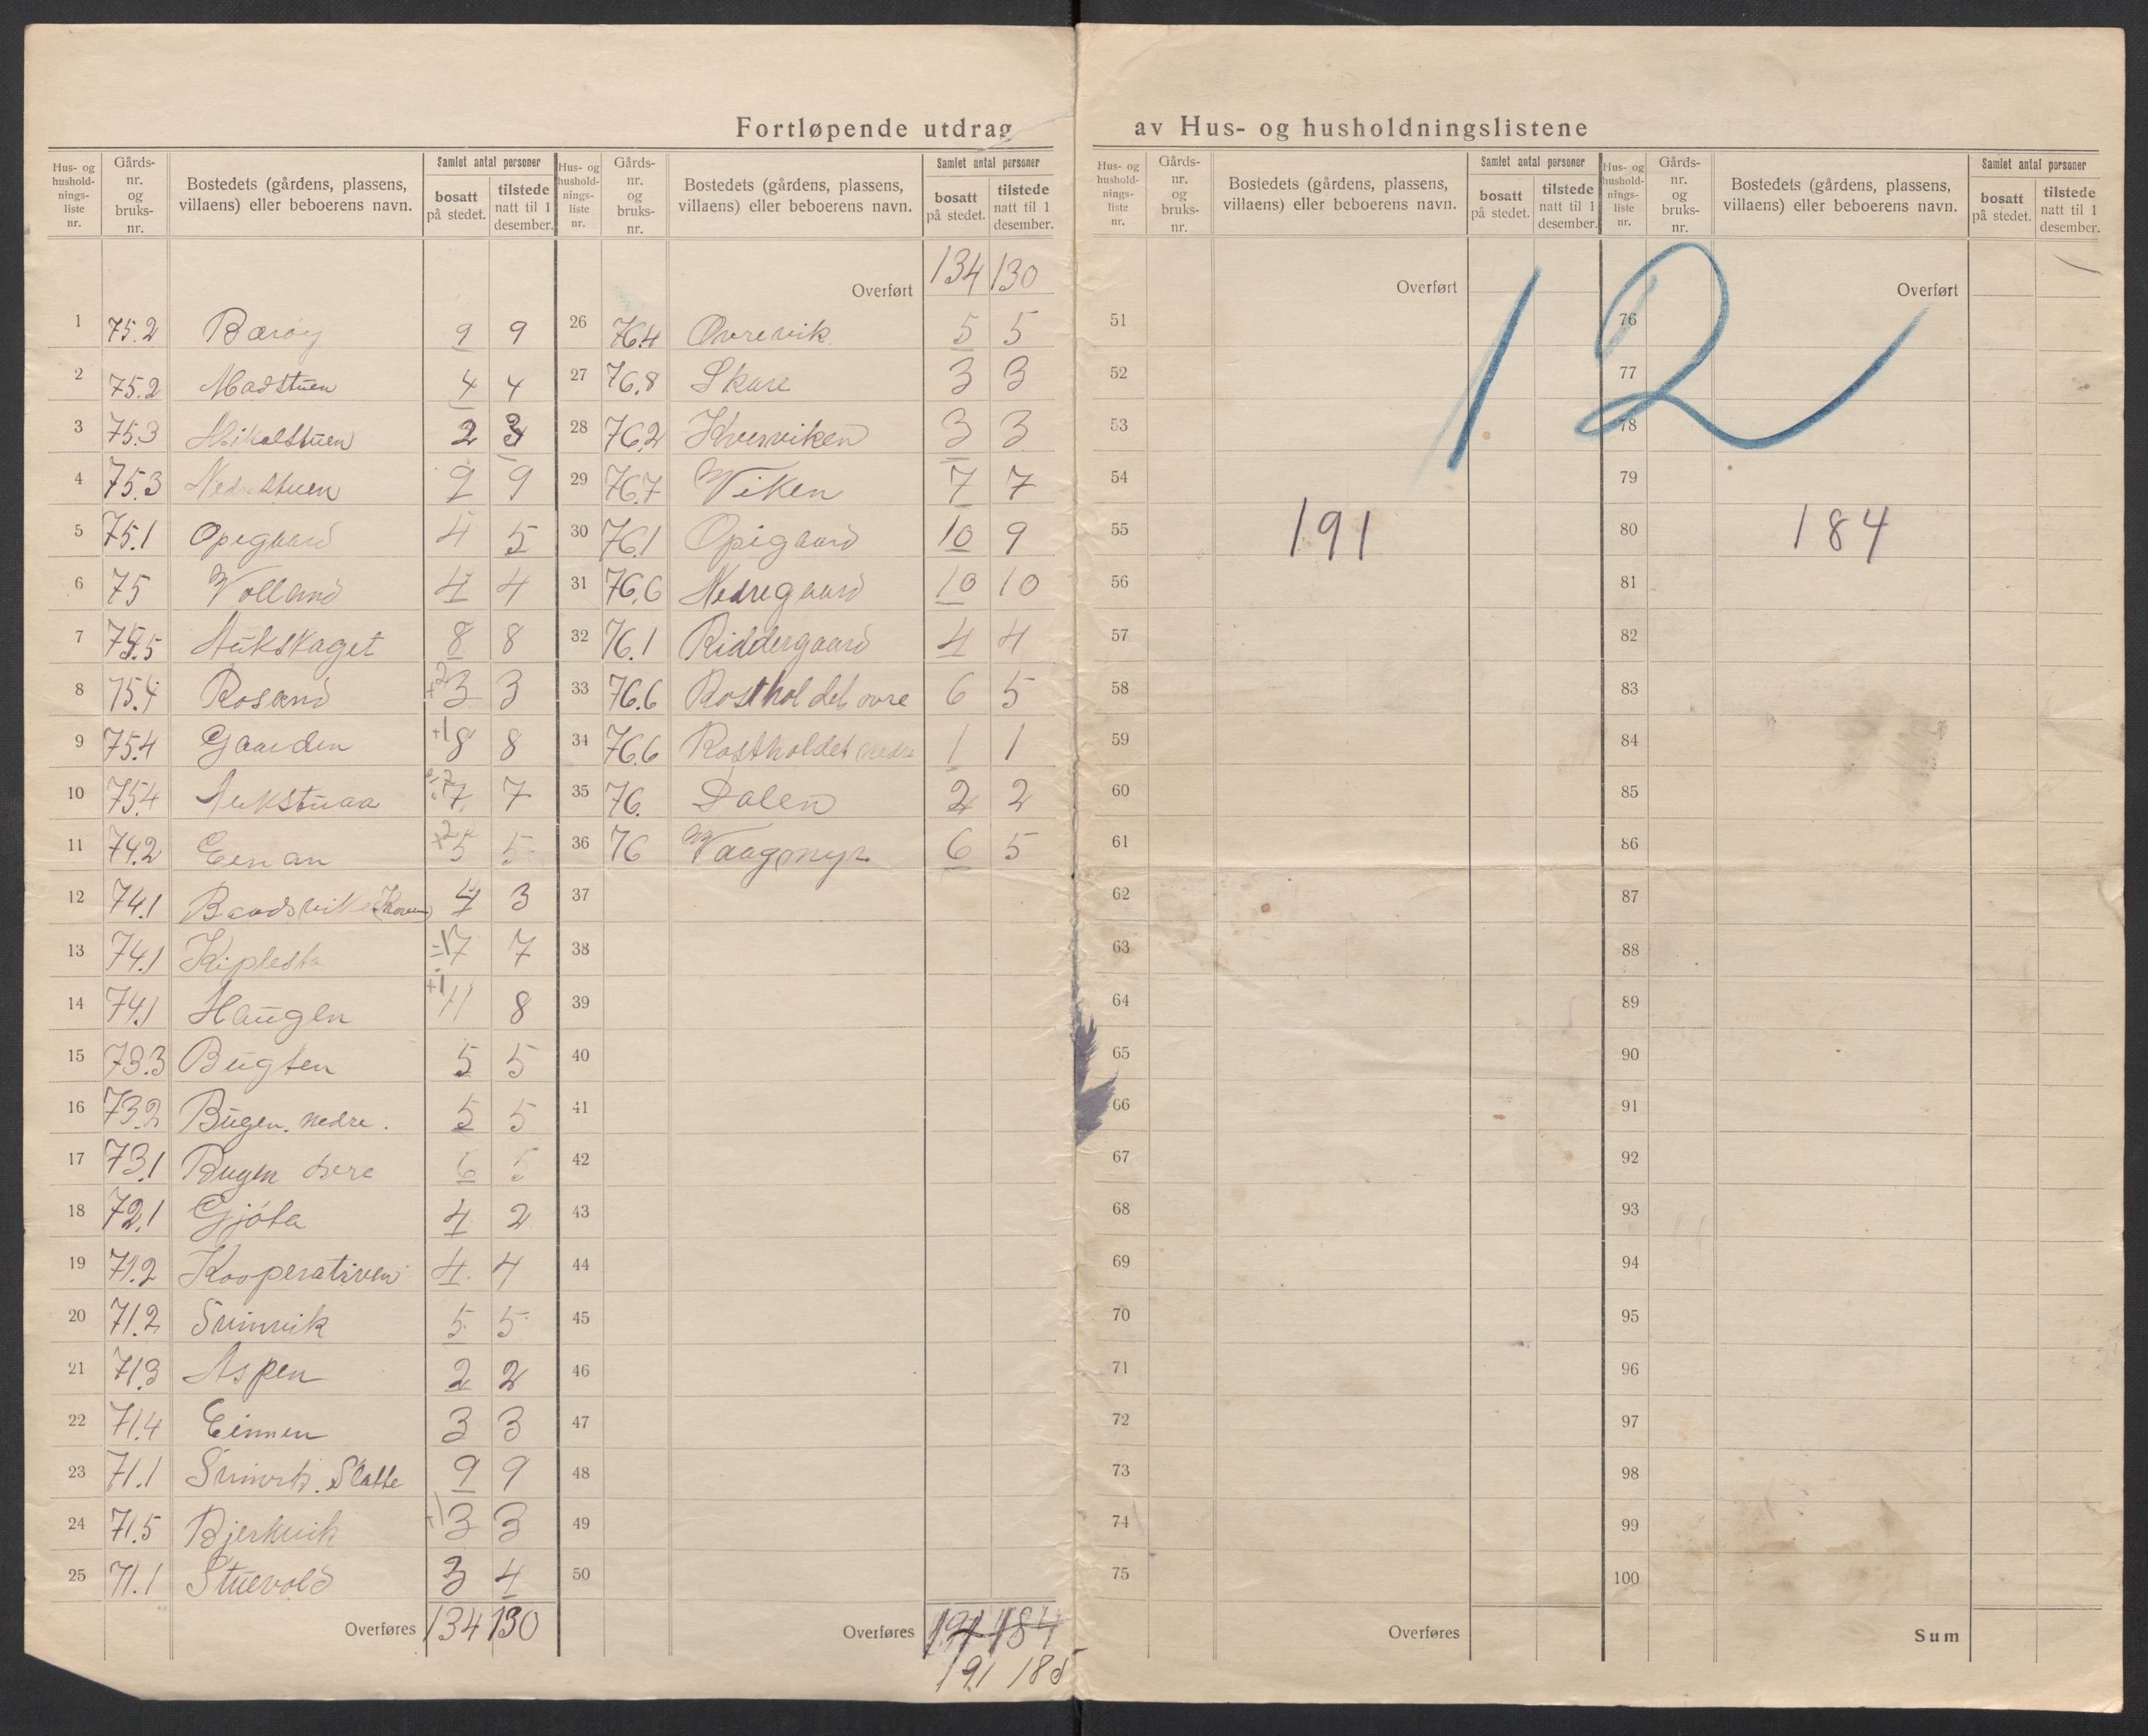 Fortløpende utdrag av Hus- og husholdningslistene
Hus- og husholdnings-liste nr. | Gårds-nr. og bruks-nr. | Bostedets (gårdens, plassens, villaens) eller beboerens navn. | Samlet antal personer | bosatt på stedet. | tilstede natt til 1 desember.
1 75.2 Barøy 9 9
2 75.2 Madstuen 4 4
3 75.3 Mikalstuen 2 3
4 75.3 Nedrestuen 9 9
5 75.1 Opigaard 4 5
6 75 Volland 4 4
7 75.5 Aukskaget 8 8
8 75.4 Rosand +2 3 3
9 75.4 Gaarden +1 8 8
10 75.4 Aukstuaa 7 7
11 74.2 Eenan +2 5 5
12 74.1 Baadsvik 4 3
13 74.1 Kiplesta 7 7
14 74.1 Haugen +1 11 8
15 73.3 Bugten 5 5
16 73.2 Bugen. nedre. 5 5
17 73.1 Bugen øvre 6 5
18 72.1 Gjøta 4 2
19 71.2 Kooperativen 4 4
20 71.2 Svinvik 5 5
21 71.3 Aspen 2 2
22 71.4 Einmen 3 3
23 71.1 Svinvik. Slatte 9 9
24 71.5 Bjerkvik +1 3 3
25 71.1 Stuevold 3 4
Overføres 134 130
Hus- og husholdnings-liste nr. | Gårds-nr. og bruks-nr. | Bostedets (gårdens, plassens, villaens) eller beboerens navn. | Samlet antal personer | bosatt på stedet. | tilstede natt til 1 desember.
Overført 134 130
26 76.4 Øvrevik 5 5
27 76.8 Skare 3 3
28 76.2 Kvernviken 3 3
29 76.7 Viken 7 7
30 76.1 Opigaard 10 9
31 76.6 Nedregaard 10 10
32 76.1 Riddergaard 4 4
33 76.6 Rostholdet øvre 6 5
34 76.6 Rostholdet nedre 1 1
35 76. Dalen 2 2
36 76 Vaagmyr 6 5
37
38
39
40
41
42
43
44
45
46
47
48
49
50
Overføres 191 184
191 185
Hus- og husholdnings-liste nr. | Gårds-nr. og bruks-nr. | Bostedets (gårdens, plassens, villaens) eller beboerens navn. | Samlet antal personer | bosatt på stedet. | tilstede natt til 1 desember.
Overført
12
51
52
53
54
55 191
56
57
58
59
60
61
62
63
64
65
66
67
68
69
70
71
72
73
74
75
Overføres
Hus- og husholdnings-liste nr. | Gårds-nr. og bruks-nr. | Bostedets (gårdens, plassens, villaens) eller beboerens navn. | Samlet antal personer | bosatt på stedet. | tilstede natt til 1 desember.
Overført
76
77
78
79
80 184
81
82
83
84
85
86
87
88
89
90
91
92
93
94
95
96
97
98
99
100
Sum